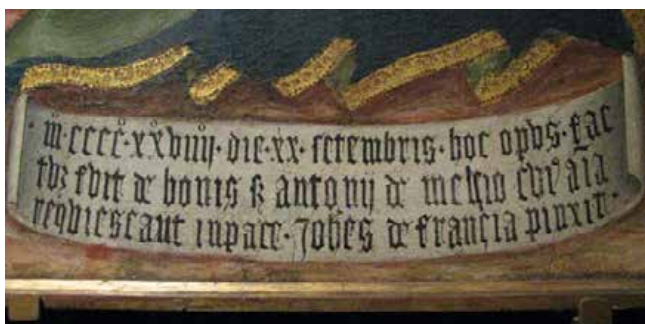 · m̊·cccc̊·xx̊viiij̊·die·xx·setembris·hoc opvs·fac
tvȝ fvit de bonis antonij de cviꝰ aia
reqviescant inpace·Johes de francia pinxit·